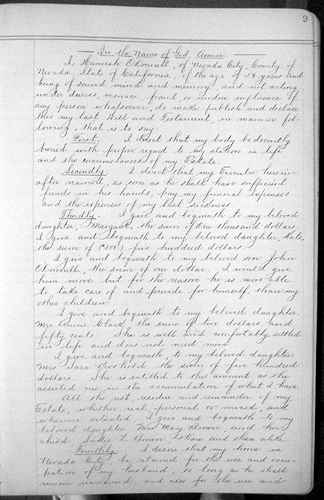 9
In the Name of God, Amen.
I, Hannah O'Donnell, of Nevada City, County of
Nevada, State of California, of the age of 59 years and
being of sound mind and memory, and not acting
under duress, menace, fraud, or undue influence of
any person whatsoever, do make, publish and declare
this my last Will and Testament, in manner fol-
lowing, that is to say:
First. I direct that my body be decently
buried with proper regard to my station in life
and the circumstances of my Estate.
Secondly. I direct that my Executor herein-
after named, as soon as he shall have sufficient
funds in his hands, pay my funeral expenses
and the expenses of my last sickness.
Thirdly. I give and bequeath to my beloved
daughter, Margaret, the sum of One thousand dollars.
I give and bequeath to my beloved daughter, Kate,
the sum of ($500) five hundred dollars.
I give and bequeath to my beloved son John
O'Donnell, the sum of one dollar. I would give
him more but for the reason he is more able
to take care of and provide for himself, than my
other children.
I give and bequeath to my beloved daughter,
Mrs Annie Clark, the sum of two dollars and
fifty cents. She is well and comfortably settled
in life and does not need more.
I give and bequeath to my beloved daughter
Mrs Sara the sum of five hundred
dollars. She is entitled to this amount as she
assisted me in the accumulation of what I have.
All the rest, residue and remainder of my
Estate, whether real, personal or mixed, and
wherever situated, I give and bequeath to my
beloved daughter Mary and her
child, Sadie share and share alike.
Fourthly. I desire that my home in
Nevada City, be retained for the use and occu-
pation of my husband so long as he shall
remain unmarried, and also for the use and